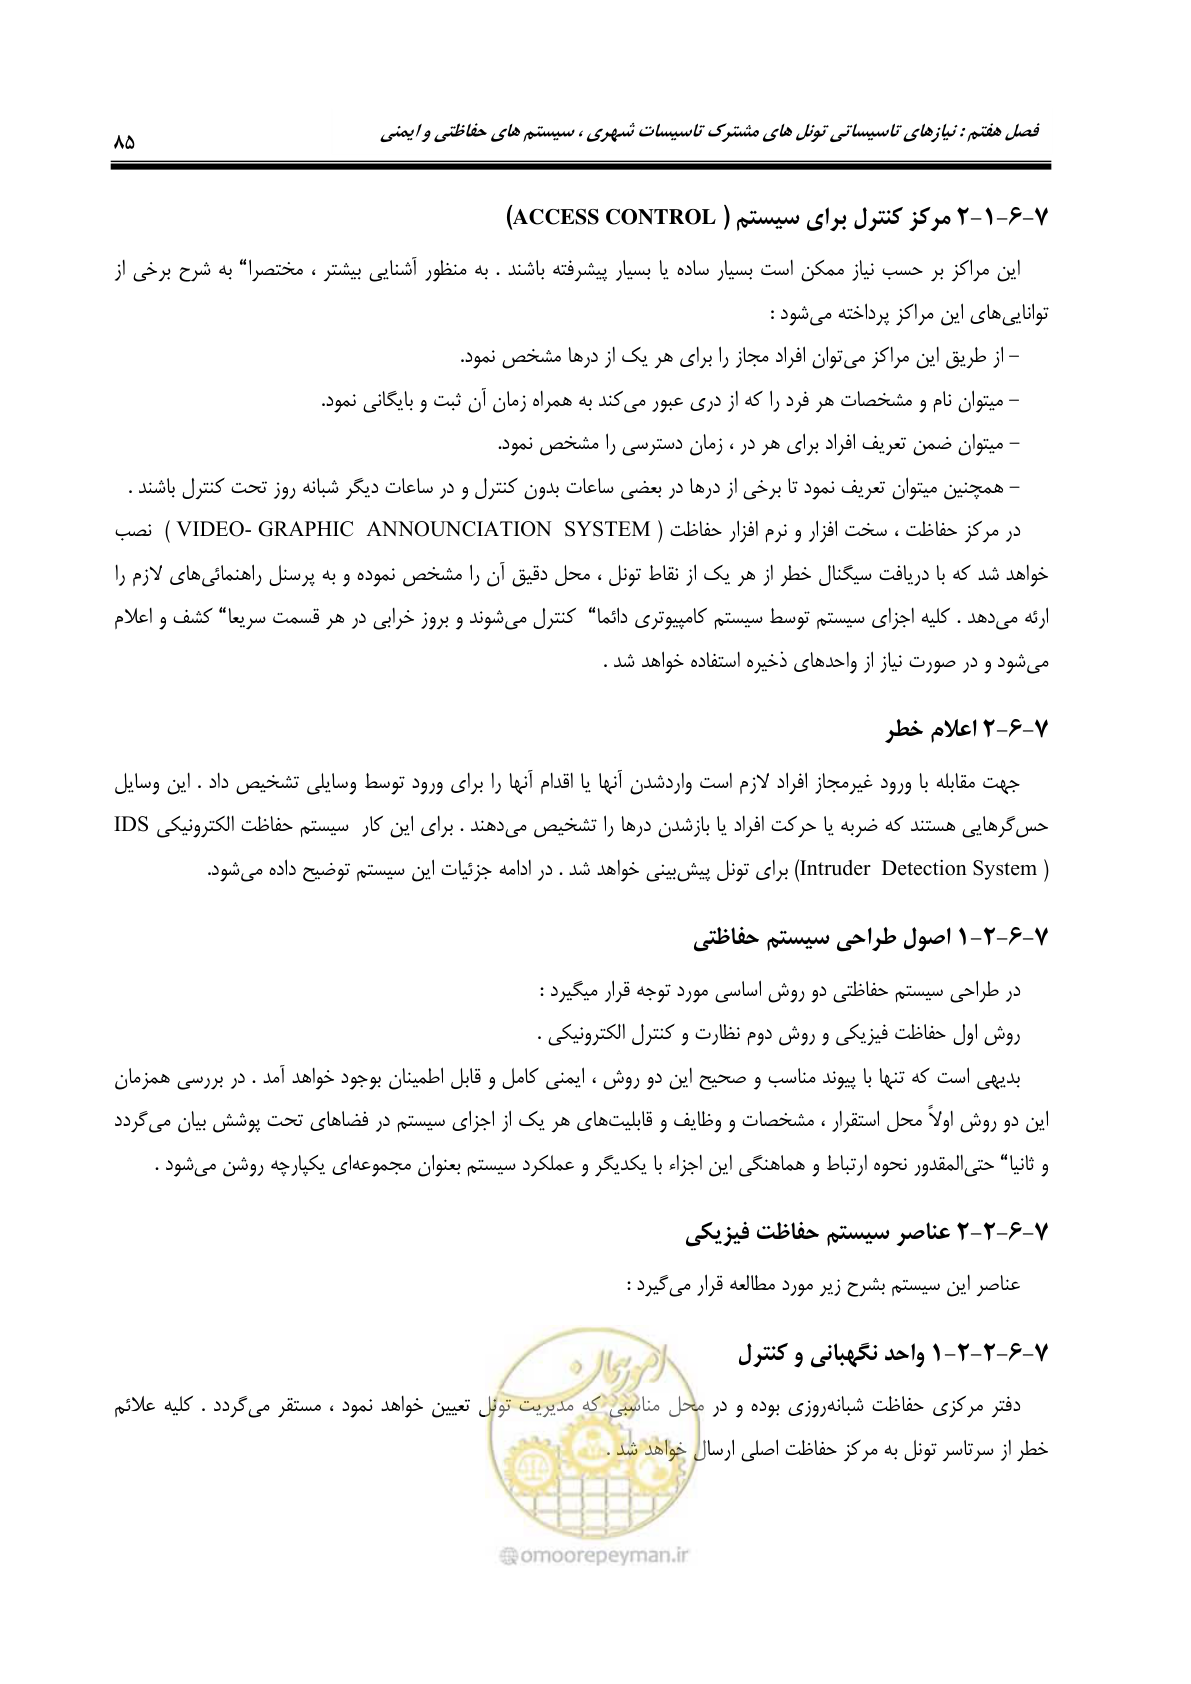 فصل هفتم : نیازهای تاسیساتی تونل های مشترک تاسیسات شهری ، سیستم های حفاظتی و ایمنی
۸۵
۷-۶-۱-۲ مرکز کنترل برای سیستم ( ACCESS CONTROL)
این مراکز بر حسب نیاز ممکن است بسیار ساده یا بسیار پیشرفته باشند . به منظور آشنایی بیشتر ، مختصرا“ به شرح برخی از
توانایی‌های این مراکز پرداخته می‌شود :
- از طریق این مراکز می‌توان افراد مجاز را برای هر یک از درها مشخص نمود.
- میتوان نام و مشخصات هر فرد را که از دری عبور می‌کند به همراه زمان آن ثبت و بایگانی نمود.
- میتوان ضمن تعریف افراد برای هر در ، زمان دسترسی را مشخص نمود.
- همچنین میتوان تعریف نمود تا برخی از درها در بعضی ساعات بدون کنترل و در ساعات دیگر شبانه روز تحت کنترل باشند .
در مرکز حفاظت ، سخت افزار و نرم افزار حفاظت ( VIDEO- GRAPHIC ANNOUNCIATION SYSTEM ) نصب
خواهد شد که با دریافت سیگنال خطر از هر یک از نقاط تونل ، محل دقیق آن را مشخص نموده و به پرسنل راهنمائی‌های لازم را
ارئه می‌دهد . کلیه اجزای سیستم توسط سیستم کامپیوتری دائما“ کنترل می‌شوند و بروز خرابی در هر قسمت سریعا“ کشف و اعلام
می‌شود و در صورت نیاز از واحدهای ذخیره استفاده خواهد شد .
۷-۶-۲ اعلام خطر
جهت مقابله با ورود غیرمجاز افراد لازم است واردشدن آنها یا اقدام آنها را برای ورود توسط وسایلی تشخیص داد . این وسایل
حس‌گرهایی هستند که ضربه یا حرکت افراد یا بازشدن درها را تشخیص می‌دهند . برای این کار سیستم حفاظت الکترونیکی IDS
( Intruder Detection System) برای تونل پیش‌بینی خواهد شد . در ادامه جزئیات این سیستم توضیح داده می‌شود.
۷-۶-۲-۱ اصول طراحی سیستم حفاظتی
در طراحی سیستم حفاظتی دو روش اساسی مورد توجه قرار میگیرد :
روش اول حفاظت فیزیکی و روش دوم نظارت و کنترل الکترونیکی .
بدیهی است که تنها با پیوند مناسب و صحیح این دو روش ، ایمنی کامل و قابل اطمینان بوجود خواهد آمد . در بررسی همزمان
این دو روش اولاً محل استقرار ، مشخصات و وظایف و قابلیت‌های هر یک از اجزای سیستم در فضاهای تحت پوشش بیان می‌گردد
و ثانیا“ حتی‌المقدور نحوه ارتباط و هماهنگی این اجزاء با یکدیگر و عملکرد سیستم بعنوان مجموعه‌ای یکپارچه روشن می‌شود .
۷-۶-۲-۲ عناصر سیستم حفاظت فیزیکی
عناصر این سیستم بشرح زیر مورد مطالعه قرار می‌گیرد :
۷-۶-۲-۲-۱ واحد نگهبانی و کنترل
دفتر مرکزی حفاظت شبانه‌روزی بوده و در محل مناسبی که مدیریت تونل تعیین خواهد نمود ، مستقر می‌گردد . کلیه علائم
خطر از سرتاسر تونل به مرکز حفاظت اصلی ارسال خواهد شد .
امور پیمان
@omoorepeyman.ir